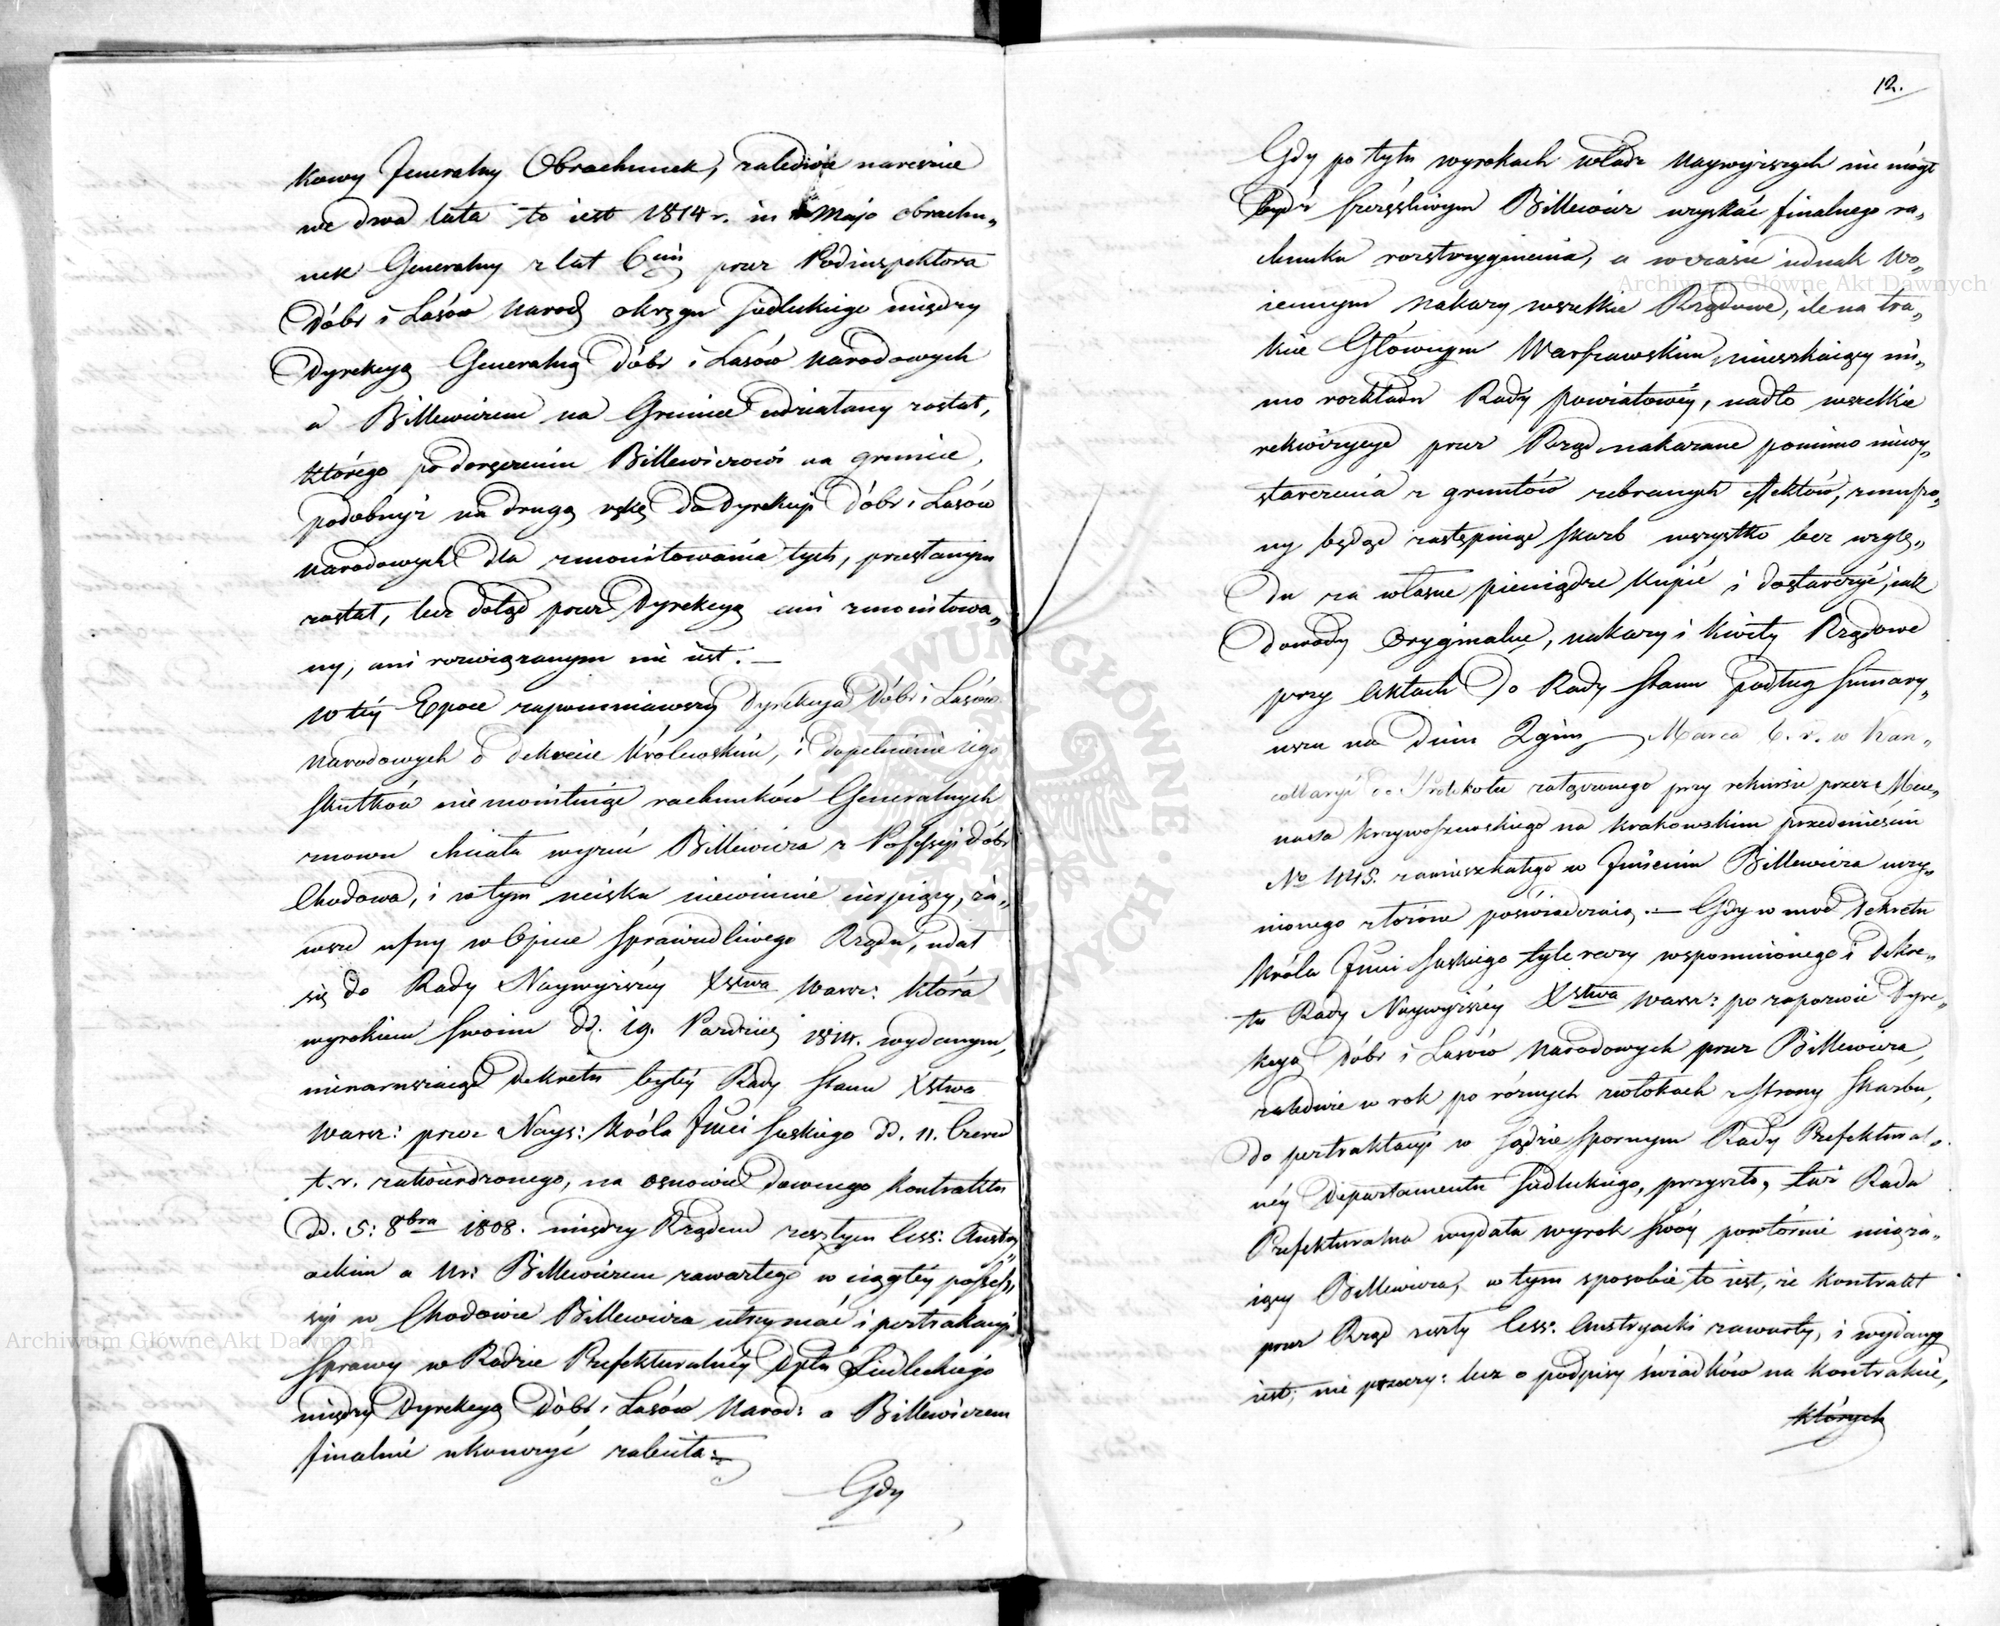 kowy Jeneralny Obrachunek, zaledwie nareszcie
we dwa lata to iest 1814 r. in Majo obrachu„
nek Generalny z lat 6ciu przez Podinspektora
Dóbr i Lasów Narod. okręgu Siedleckiego między
Dyrekcyą Generalną Dóbr i Lasów Narodowych
a Billewiczem na Gruncie udziałany został,
którego po doręczeniu Billewiczowi na gruncie,
podobnyż na drugą rękę do Dyrekcyi Dóbr i Lasów
Narodowych dla zmonitowania tych, przesłanym
został, lecz dotąd przez Dyrekcyą ani zmonitowa„
ny, ani rozwiązanym nie iest. —
W tey Epoce zapomniawszy Dyrekcya Dóbr i Lasów
Narodowych o Dekrecie Królewskim, i dopełnienie iego
skutków nie monituiąc rachunków Generalnych
znowu chciała wyzuć Billewicza z Possessyi Dóbr
Chodowa, i w tym ucisku niewinnie cierpiący, za„
wsze ufny w Opiece Sprawiedliwego Rządu, udał
się do Rady Naywyższey Xstwa Warsz: która
wyrokiem swoim dd. 19. Pazdzier 1814. wydanym,
nienaruszaiąc Dekretu byłey Rady Stanu Xstwa
Warsz: przez Nayj: Króla Jmci Saskiego dd. 11. Czerw
t. r. zatwierdzonego, na osnowie dawnego Kontraktu
dd. 5: 8bra 1808. między Rządem zeszłym Cess: Austry„
ackim a Ur: Billewiczem zawartego w ciągłey possess„
syi w Chodowie Billewicza utrzymać i pertraktacyi
Sprawy w Radzie Prefekturalney Dptu Siedleckiego
między Dyrekcyą Dóbr i Lasów Narod: a Billewiczem
finalnie ukonczyć zaleciła: —
Gdy
12.
Gdy po tylu wyrokach władz Naywyższych nie mógł
bydź szczęśliwym Billewicz uzyskać finalnego ra„
chunku rozstrzygnienia, a w czasie iednak Wo„
iennym nakazy wszelkie Rządowe, ile na tra„
kcie Głównym Warszawskim mieszkaiący mi„
mo rozkładu Rady powiatowey, nadto wszelkie
rekwizycye przez Rząd nakazane pomimo niewy„
starczenia z gruntów zebranych effektów, zmuszo„
ny będąc zastępuiąc skarb wszystko bez wzglę„
du za własne pieniądze kupić i dostarczyć, iak
dowody Oryginalne, nakazy i kwity Rządowe
przy Aktach do Rady Stanu podług Summary„
usza na dniu 2gim Marca b. r. w Kan„
cellaryi do Protokołu załączonego przy rekursie przez Mece„
nasa Krzywoszewskiego na Krakowskim przedmieściu
No 445. zamieszkałego w Jmieniu Billewicza uczy„
nionego złożone poświadczaią. — Gdy w moc Dekretu
Króla Jmci Saskiego tyle razy wspomnionego i Dekre„
tu Rady Naywyższey Xstwa Warsz: po zapozwie Dyre„
kcyą Dóbr i Lasów Narodowych przez Billewicza,
zaledwie w rok po różnych zwłokach z strony Skarbu,
do pertraktacyi w Sądzie Spornym Rady Prefektural„
ney Departamentu Siedleckiego, przyszło, taż Rada
Prefekturalna wydała wyrok swóy powtórnie miaża„
iący Billewicza, w tym sposobie to iest, że kontrakt
przez Rząd zeszły Cess: Austryacki zawarty, i wydany
iest; nie przeczy: lecz o podpisy świadków na kontrakcie,
których
Archiwum Główne Akt Dawnych
Archiwum Główne Akt Dawnych